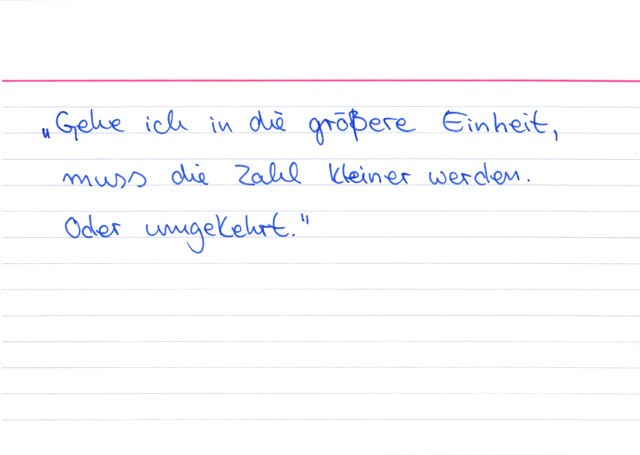 „Gehe ich in die größere Einheit,
muss die Zahl kleiner werden.
Oder umgekehrt."